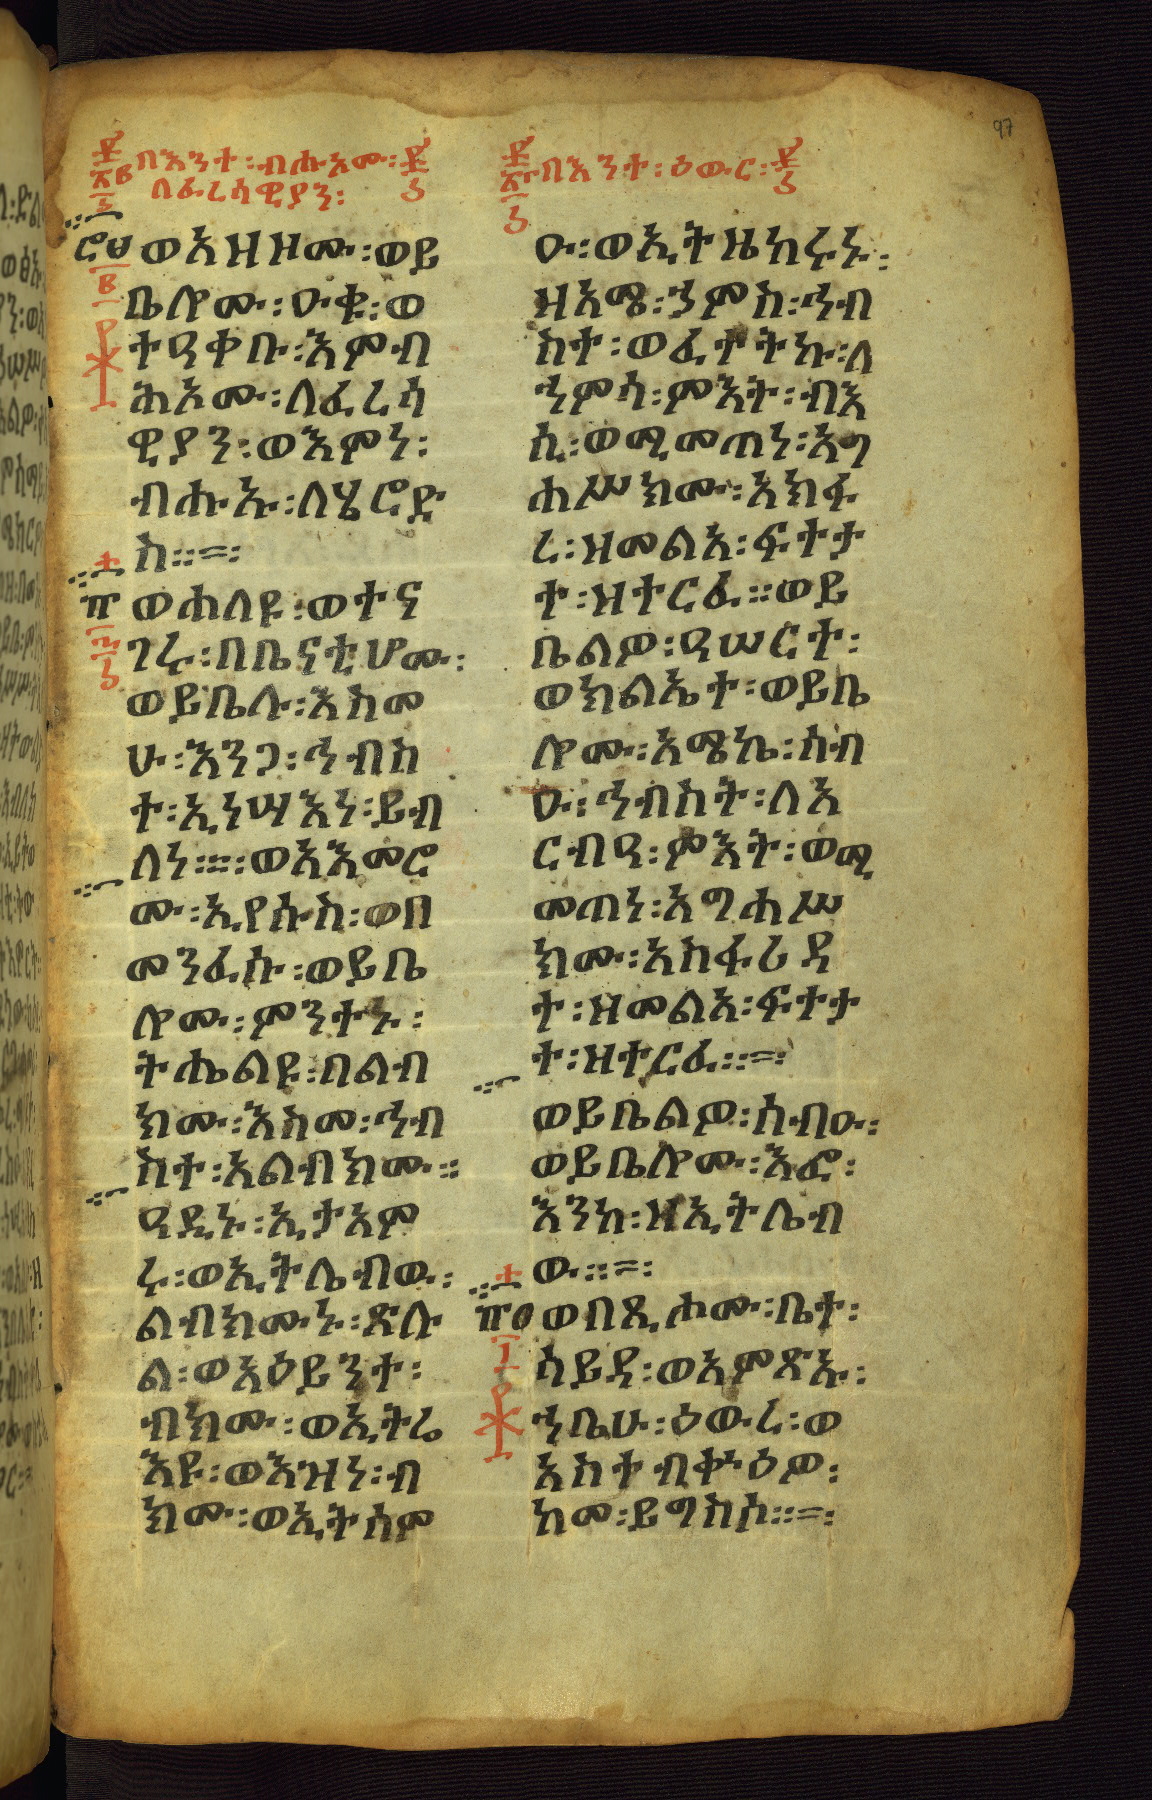 97
በእንተ፡ብሑአሙ፡
ለፈሪሳዊያን፡
ወአዘዞሙ፡ወይ
ቤሎሙ፡ዑቁ፡ወ
ተዓቀቡ፡እምብ
ሕኦሙ፡ለፈሪሳ
ዊያን፡ወእምነ፡
ብሑኡ፡ለሄሮድ
ስ።=፡
ወሐለዩ፡ወተና
ገሩ፡በቤናቲሆሙ፡
ወይቤሉ፡እስመ
ሁ፡እንጋ፡ኅብስ
ተ፡ኢነሣእነ፡ይብ
ለነ።=፡ወአእመሮ
ሙ፡ኢየሱስ፡ወበ
መንፈሱ፡ወይቤ
ሎሙ፡ምንተኑ፡
ትሔልዩ፡በልብ
ክሙ፡እስመ፡ኅብ
ስተ፡አልብክሙ።
ዓዲኑ፡ኢታአም
ሩ፡ወኢትሌብዉ፡
ልብክሙኑ፡ጽሉ
ል፡ወአዕይንተ፡
ብክሙ፡ወኢትሬ
እዩ፡ወእዝነ፡ብ
ክሙ፡ወኢትሰም
በእንተ፡ዕውር፡
ዑ፡ወኢትዜከሩኑ፡
ዘአሜ፡ኃምስ፡ኅብ
ስተ፡ወፈተትኩ፡ለ
ኅምሳ፡ምእት፡ብእ
ሲ፡ወሚመጠነ፡አግ
ሐሥክሙ፡አክፋ
ረ፡ዝመልአ፡ፍተታ
ተ፡ዝተርፈ።ወይ
ቤልዎ፡ዓሠርተ፡
ወክልኤተ፡ወይቤ
ሎሙ፡አሜኬ፡ስብ
ዑ፡ኅብስት፡ለእ
ርብዓ፡ምእት፡ወሚ
መጠነ፡አግሐሥ
ክሙ፡አስፋሪዳ
ተ፡ዘመልአ፡ፍተታ
ተ፡ዝተርፈ።=፡
ወይቤልዎ፡ሰብዑ፡
ወይቤሎሙ፡እፎ፡
እንከ፡ዘኢትሌብ
ዉ።=፡
ወበጺሖሙ፡ቤተ፡
ሳይዳ፡ወአምጽኡ፡
ኅቤሁ፡ዕውረ፡ወ
አስተብቍዕዎ፡
ከመ፡ይግስሶ።=፡